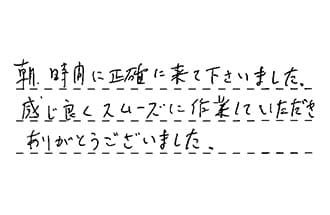 朝、時間に正確に来て下さいました。
感じ良くスムーズに作業していただき
ありがとうございました。